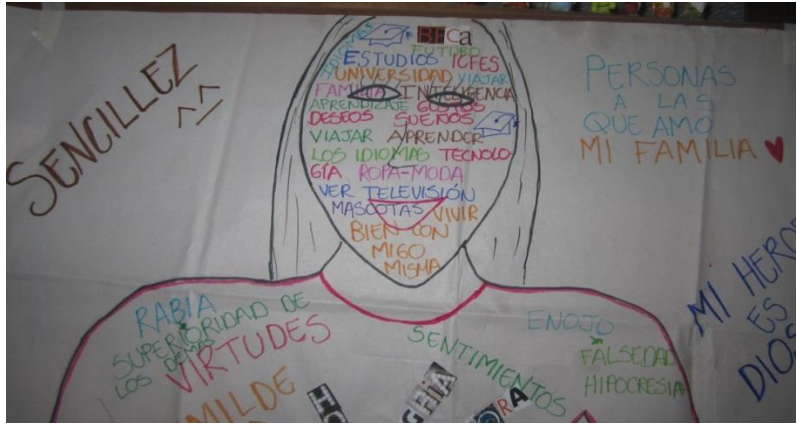 SENCILLEZ
^^
IDIOMAS
BECa
FUTURO
ESTUDIOS ICFES
UNIVERSIDAD VIAJAR
FAMILIA INTELIGENCIA
APRENDIZAJE GUSTOS
DESEOS SUEÑOS
VIAJAR APRENDER
LOS IDIOMAS TECNOLO-
GÍA ROPA-MODA
VER TELEVISIÓN
MASCOTAS VIVIR
BIEN CON
MIGO
MISMA
PERSONAS
A LAS
QUE AMO
MI FAMILIA
MI HEROE
ES
DIOS
RABIA
SUPERIORIDAD DE
LOS DEMAS
VIRTUDES
SENTIMIENTOS
ENOJO
FALSEDAD
HIPOCRESIA